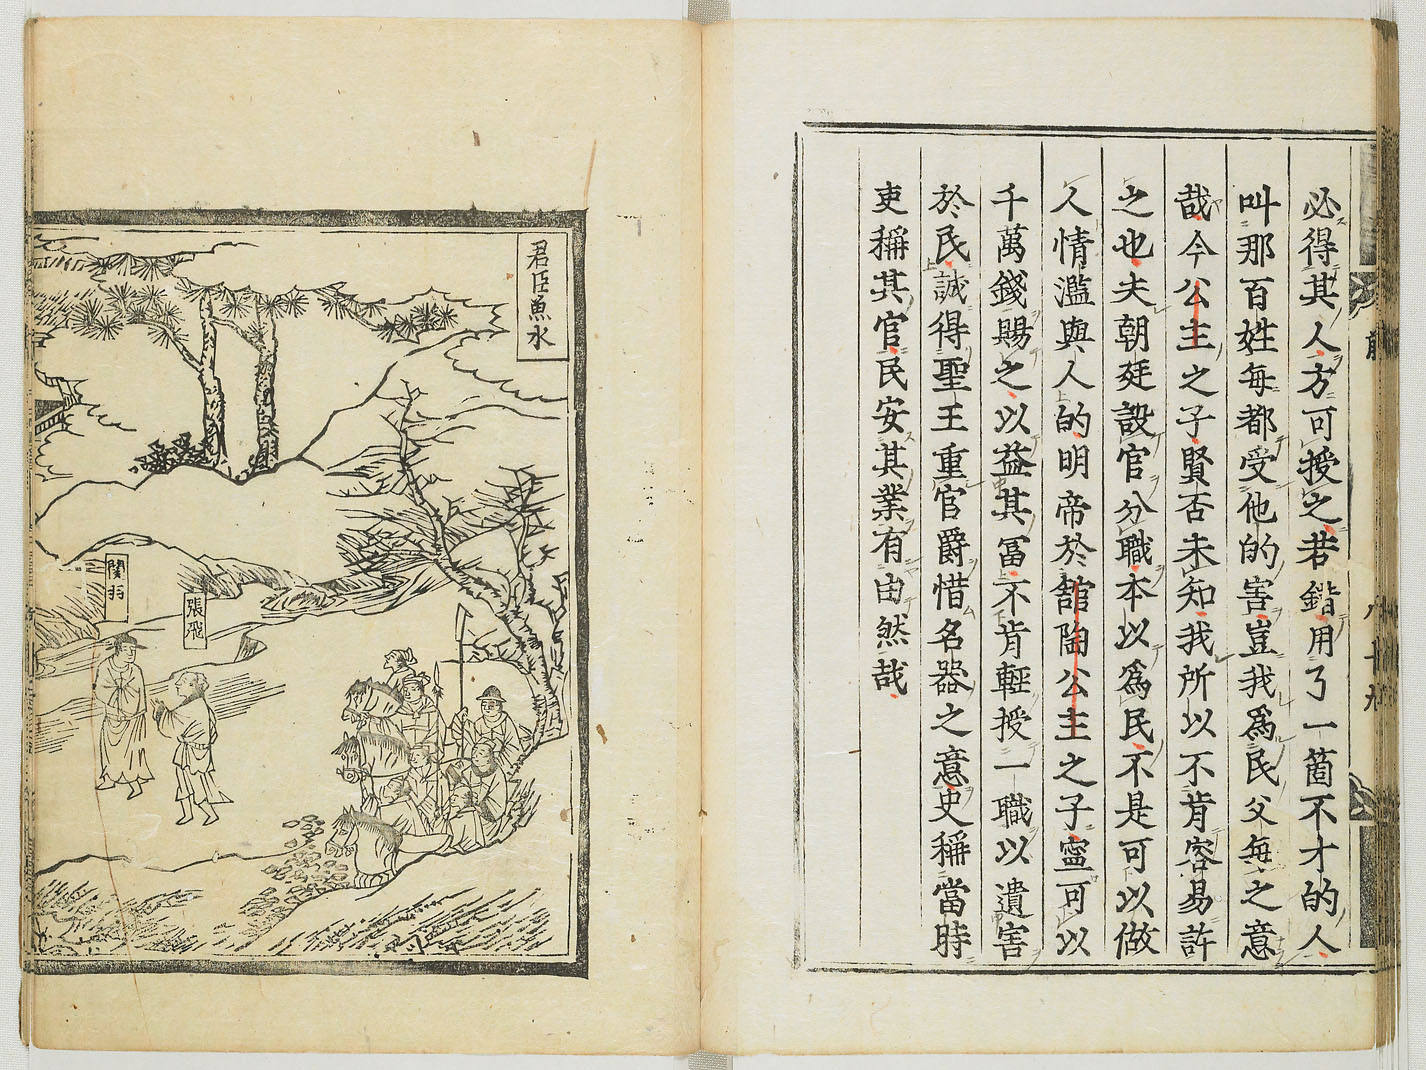 必得其人方可授之若鍇用了一箇不才的人
叫那百姓每都受他的害豈我爲民父母之意
哉今公主之子賢否未知我所以不肯容易許
之也夫朝廷設官分職本以爲民不是可以做
人情濫與人的明帝於舘陶公主之子寧可以
千萬錢賜之以益其富不肯輕授一職以遺害
於民誠得聖王重官爵惜名器之意史稱當時
吏稱其官民安其業有由然哉
君臣魚水
關羽
張飛